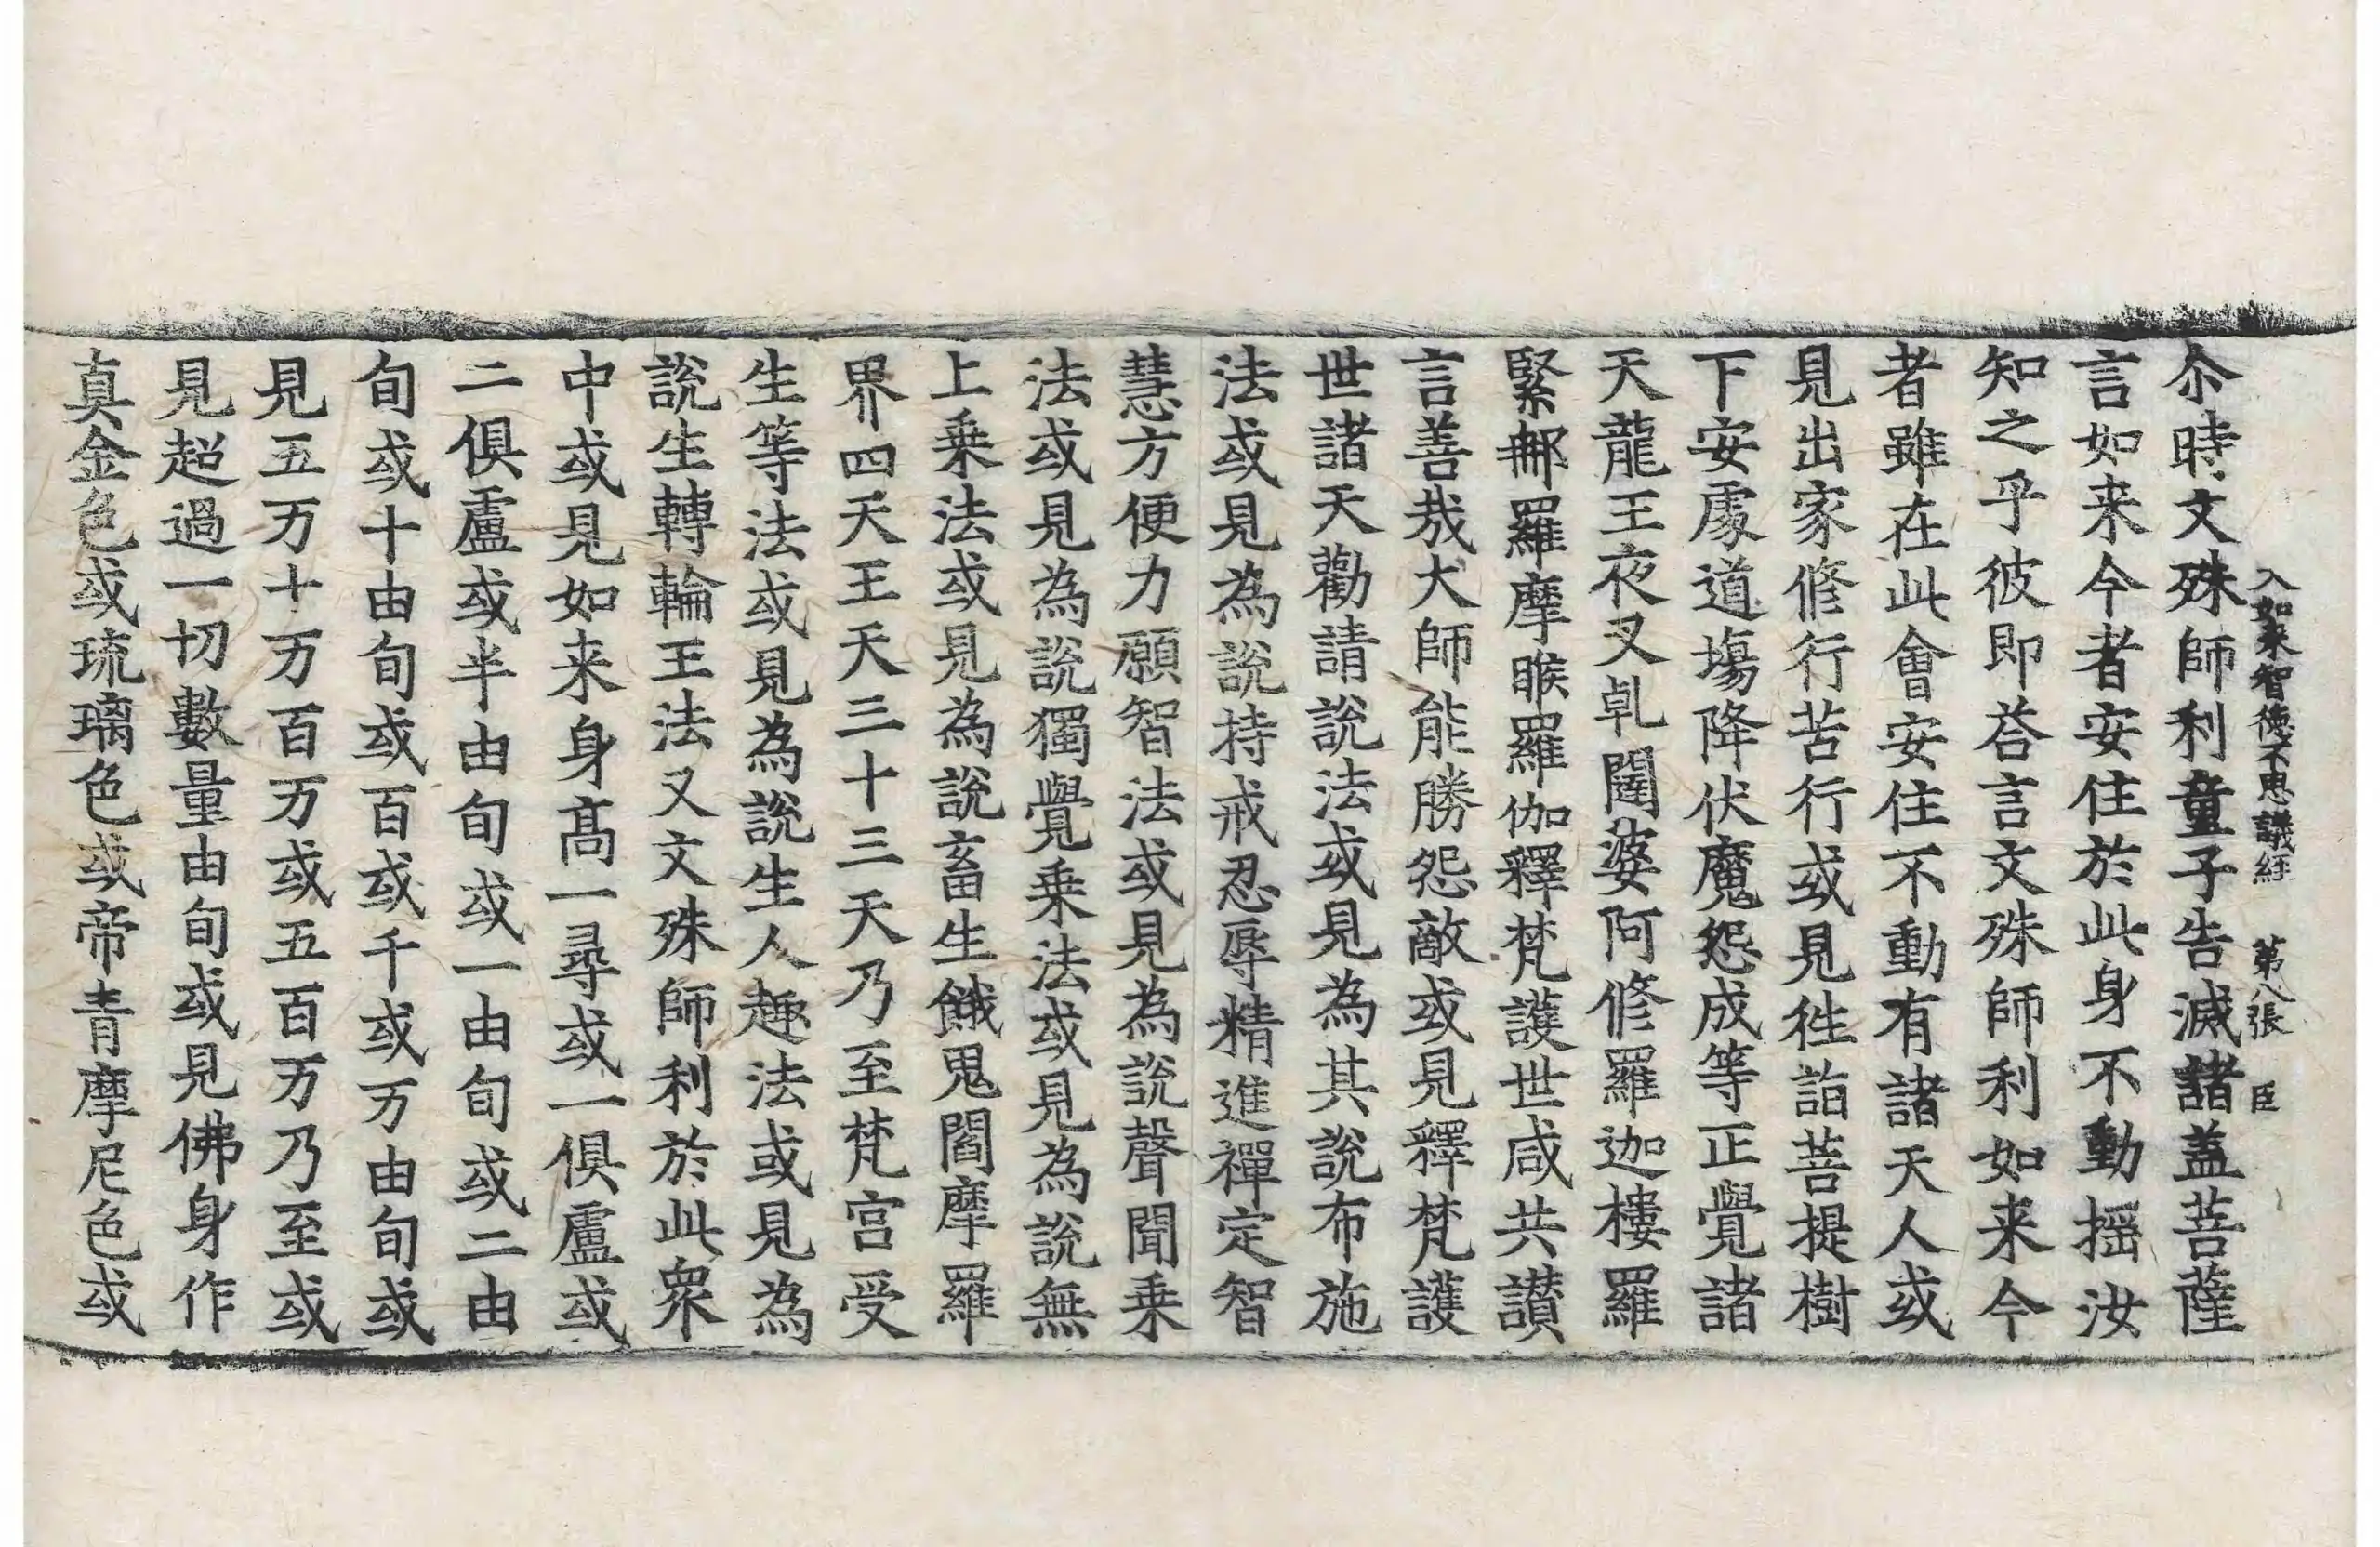 入如来智徳不思議経　第八張　臣
尒時文殊師利童子告滅諸盖菩薩
言如来今者安住於此身不動摇汝
知之乎彼即荅言文殊師利如来今
者雖在此會安住不動有諸天人或
見出家修行苦行或見徃詣菩提樹
下安處道塲降伏魔怨成等正覺諸
天龍王夜叉乹闥婆阿修羅迦樓羅
緊那羅摩睺羅伽釋梵護世咸共讃
言善哉大師能勝怨敵或見釋梵護
世諸天勸請說法或見為其說布施
法或見為說持戒忍辱精進禪定智
慧方便力願智法或見為說聲聞乗
法或見為說獨覺乗法或見為說無
上乗法或見為說畜生餓鬼閻摩羅
界四天王天三十三天乃至梵宫受
生等法或見為說生人趣法或見為
說生轉輪王法又文殊師利於此衆
中或見如来身髙一尋或一俱盧或
二俱盧或半由旬或一由旬或二由
旬或十由旬或百或千或万由旬或
見五万十万百万或五百万乃至或
見超過一切數量由旬或見佛身作
真金色或琉璃色或帝青摩尼色或